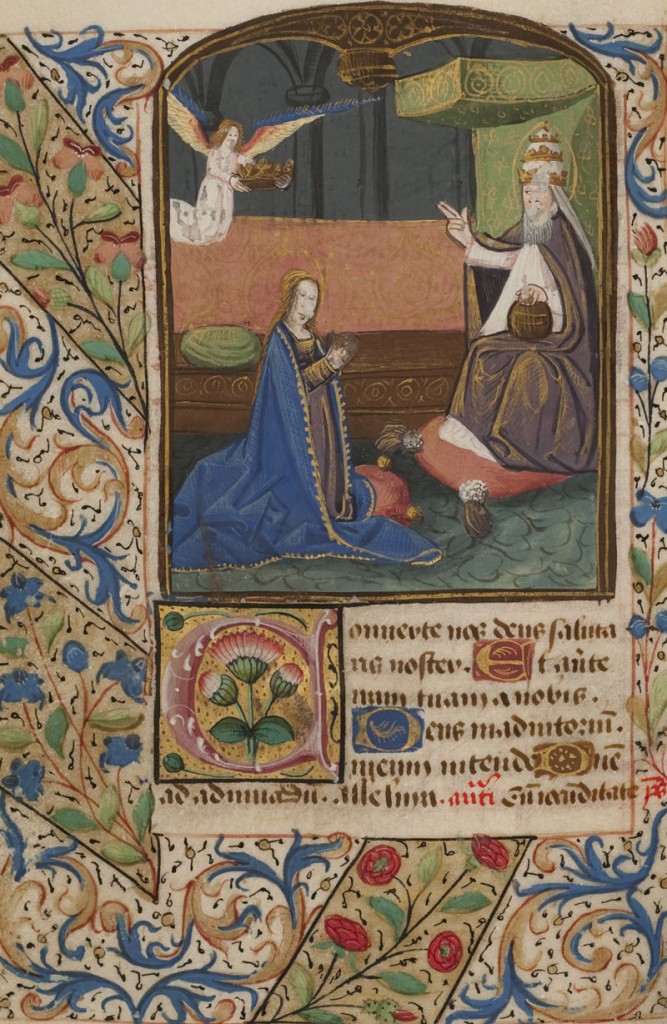 Conuerte nos deus saluta
ris noster. Et aūte
iram tuam a nobis.
Deus in adiutoriū.
meum intende Dñe
ad adiuuādū. Alleluia. Cū iocunditate